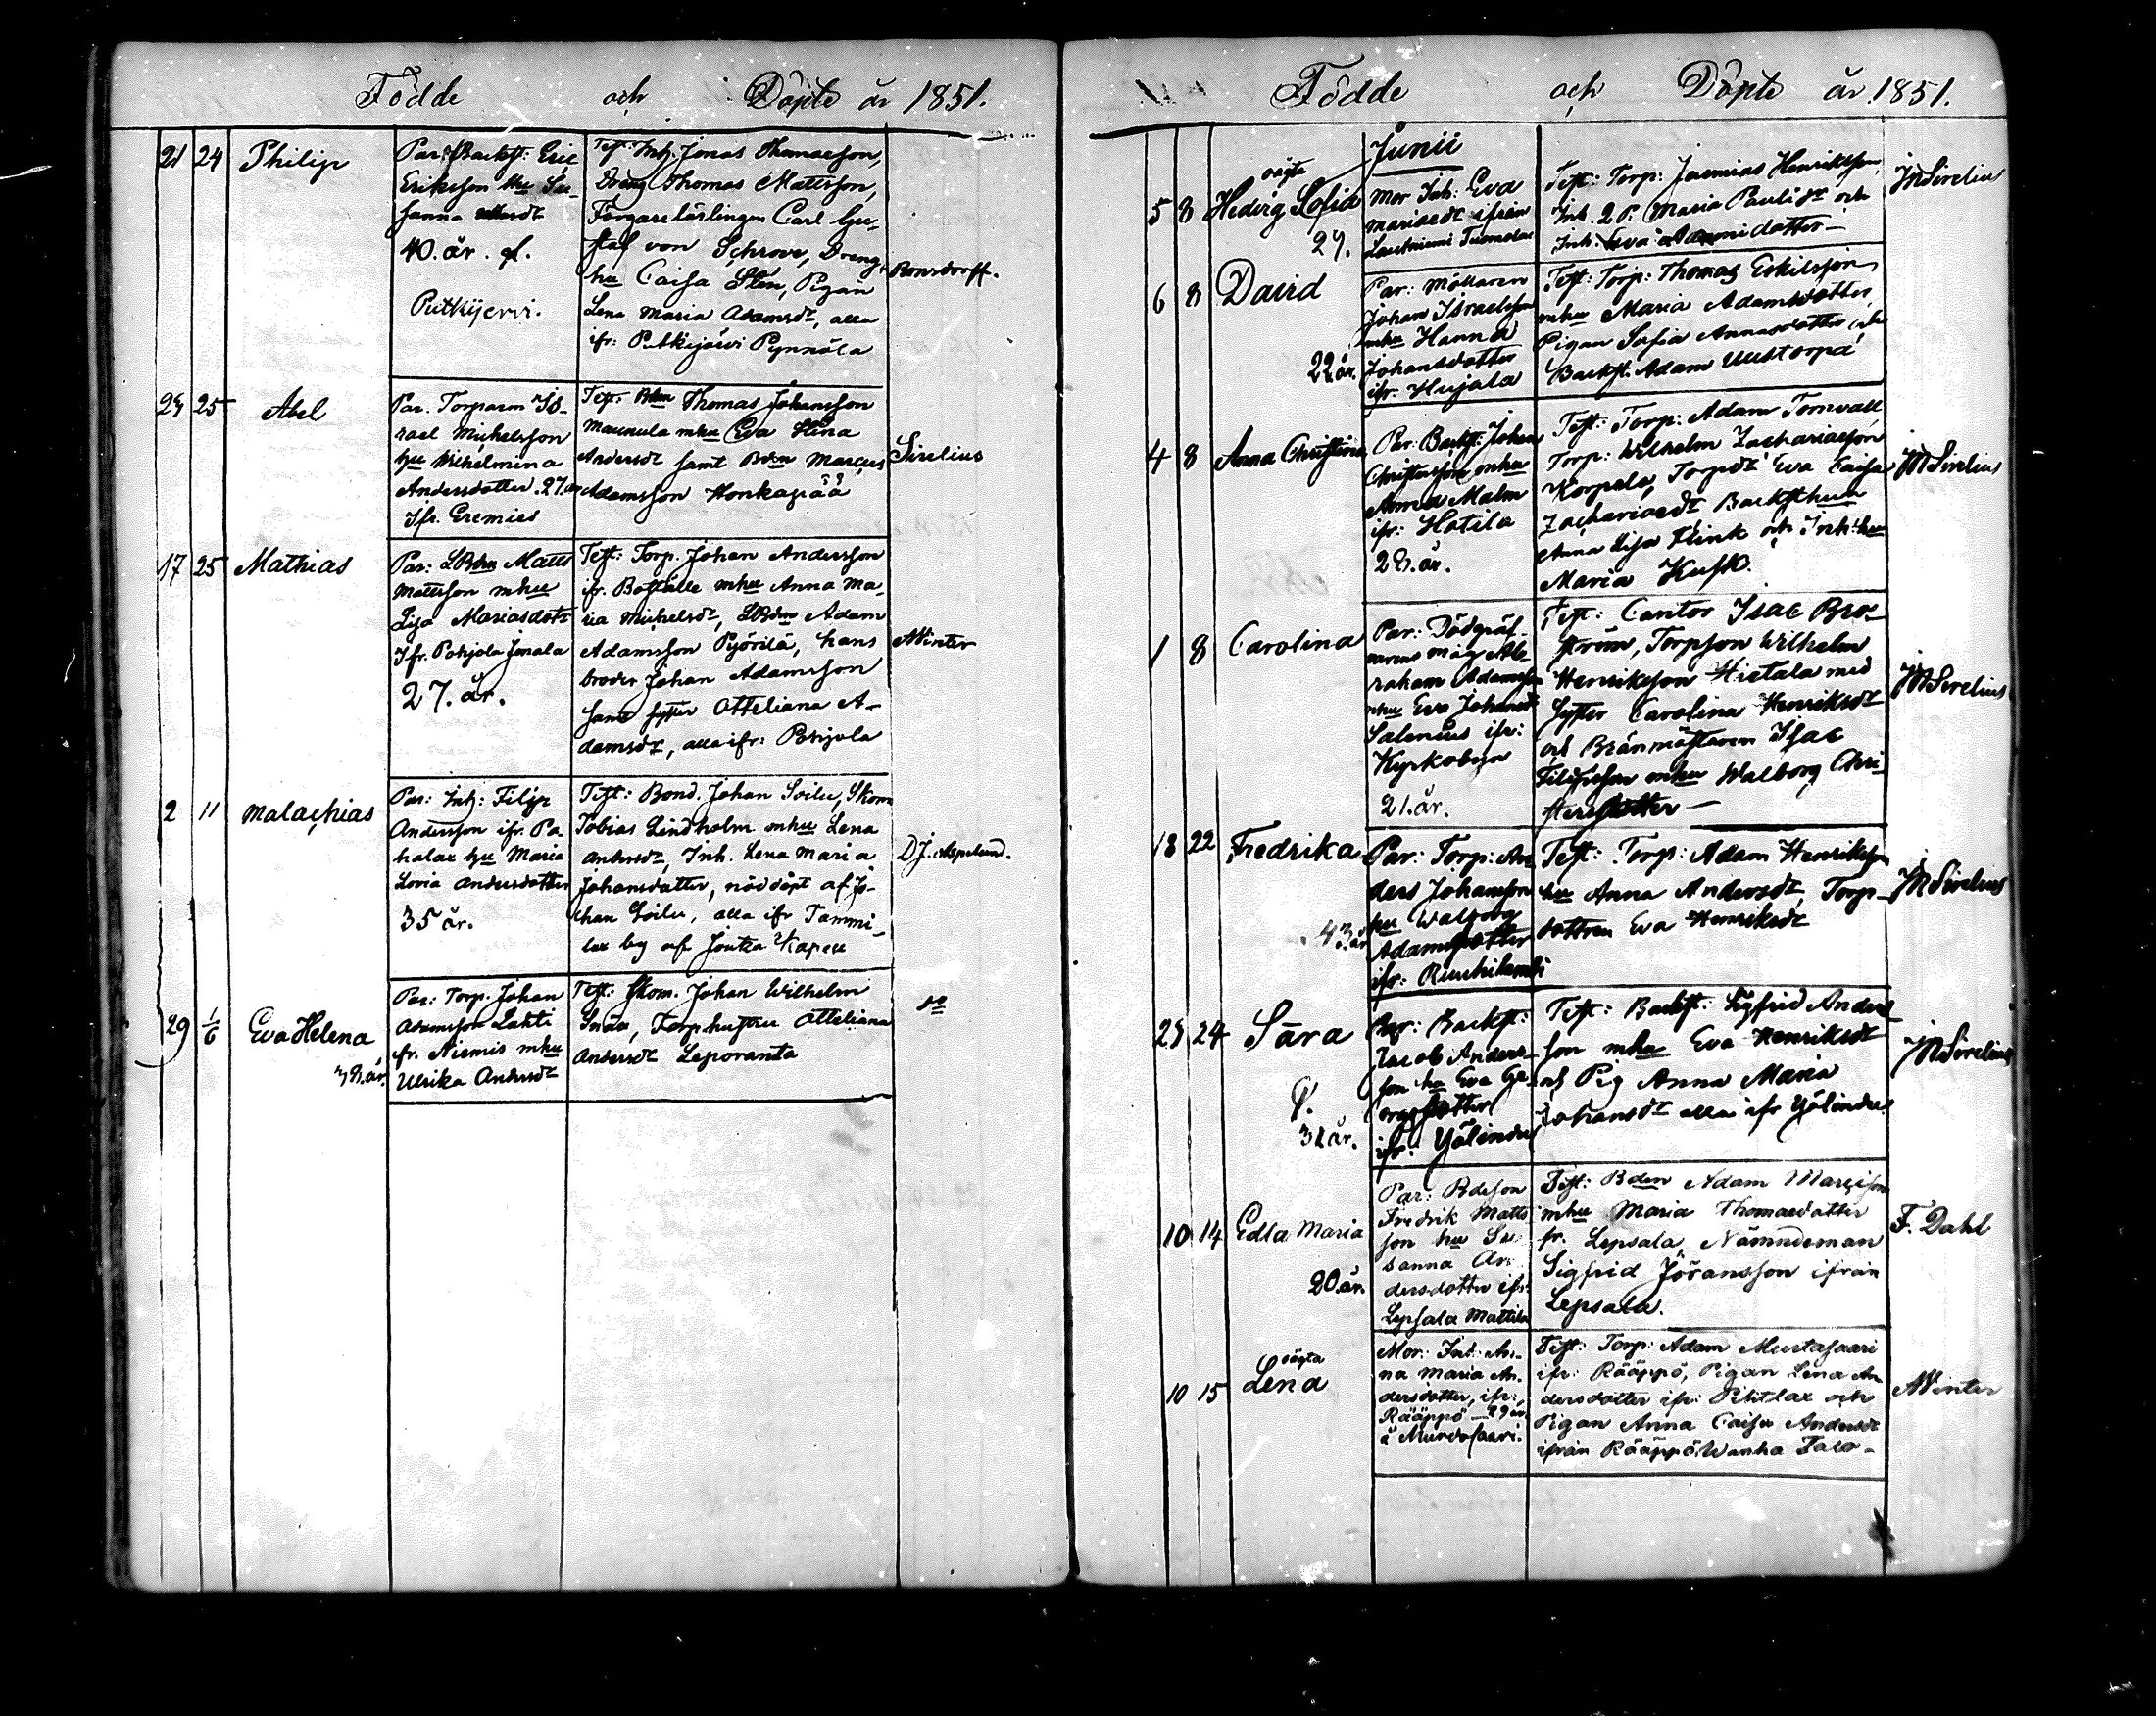 Födde och Döpte år 1851.
21 24 Philip
Par: Backst: Eric
Eriksson hu Su-
sanna
40. år. gl.
Putkijervi.
Test: Inh. Jonas Thomasson,
Dräng Thomas Mattsson,
Färgarelärlingen Carl Gu-
staf von Schrove, Dreng
hu Caisa Sten, Pigan
Lena Maria Adamsdr, alla
ifr: Putkijärvi Pynnölä
Bonsdorff.
25 Abel
Par. Torparen Is-
rael Michelsson
hu Wilhelmina
Andersdotter. 27. år
Ifr. Eremies
Test: Bdn Thomas Johansson
Maunula mhu Eva Stina
Andersdr samt Bdn Marcus
Adamsson Honkapää
Sirelius
17 25 Mathias
Par: LBdn Matts
Mattsson mhu
Lisa Mariasdotr
Ifr. Pohjola Jenala
27. år.
Test: Torp. Johan Andersson
ifr. Boställe mhu Anna Ma-
ria Michelsdr, LBdn Adam
Adamsson Pyörilä, hans
broder Johan Adamsson
samt syster Otteliana A-
damsdr, alla ifr: Pohjola
AWinter
2 11 Malachias
Par: Inh: Filip
Andersson ifr. Pa-
halax hu Maria
Lovia Andersdotter
35 år.
Test: Bond. Johan Soilu, Skom
Tobias Lindholm mhu Lena
Andersdr, Inh. Lena Maria
Johansdotter, nöddöpt af Jo-
han Soilu, alla ifr Tammi-
lax by af Joutza Kapell
DJ. Aspelund.
29 1/6 Eva Helena
38. år.
Par: Torp. Johan
Adamsson Lahti
fr. Niemis mhu
Ulrika Andersdr
Test: Skom. Johan Wilhelm
Torphustru Otteliana
Andersdr Leporanta
do
Födde och Döpte år 1851.
Junii
5 8 oägta
Hedvig Sofia
29.
Mor Inh: Eva
Mariaedr ifrån
Lautniemi Tuomola
Test: Torp: Jeremias Henriksson,
Inh. 2 P. Maria Paulidr och
Inh: Eva Adamidotter-
JMSirelius
6 8 David
22 år.
Par: Möllaren
Johan Israelsson
mhu Hanna
Johansdotter
ifr. Hujala
Test: Torp: Thomas Eskilsson
mhu Maria Adamsdotter,
Pigan Sofia Annasdotter och
Backst. Adam Uustorpa
4 8 Anna Christina
Par: Backst: Johan
Christersson mhu
Anna Malm
ifr: Hotila
28. år.
Test: Torp: Adam Tornvall
Torp: Wilhelm Zachariasson
Korpela, Torpdr Eva Caisa
Zachariaedr Backsthuu
Anna Lisa Flink och Inh: hu
Maria Kusk.
JMSirelius
1 8 Carolina
Par: Dödgräf-
varens måg Ab-
raham Adamsson
mhu Eva Johansdr
Salenius ifr:
Kyrkobyn
21. år.
Test: Cantor Isac Bro-
ström, Torpson Wilhelm
Henriksson Hietala med
Syster Carolina Henriksdr
och Bränmästaren Isac
Filipsson mhu Walborg Chri-
stersdotter-
JMSirelius
18 22 Fredrika
43. år
Par: Torp: An-
ders Johansson
hu Walborg
Adamsdotter
ifr: Ruuhilambi
Test: Torp: Adam Henriksson
hu Anna Andersdr, Torp-
dottren Eva Henriksdr
JMSirelius
24 Sara
31 år.
Par: Backst:
Jacob Anders-
son hu Eva Ge-
orgsdotter
ifr: Yölindu
Test: Backst: Sigfrid Anders-
son mhu Eva Henriksdr
och Pig Anna Maria
Johansdr alla ifr Yölindu
JMSirelius
10 14 Edla Maria
20. år.
Par: Bdeson
Fredrik Matts
son hu Su
sanna An
dersdotter ifr:
Lepsala Mattila
Test: Bden Adam Marcisson
mhu Maria Thomaedotter
fr. Lepsala, Nämndeman
Sigfrid Jöransson ifrån
Lepsala.
F. Dahl
10 15 oägta
Lena
Mor: Inh: An-
na Maria An-
dersdotter, ifr:
Rääppö - 29 år
å Murdosaari.
Test: Torp: Adam Mustasaari
ifr: Rääppö, Pigan Lena An
dersdotter ifr: Pihtlax och
Pigan Anna Caisa Andersdr
ifrån Rääppö Wanha Talo-
AWinter